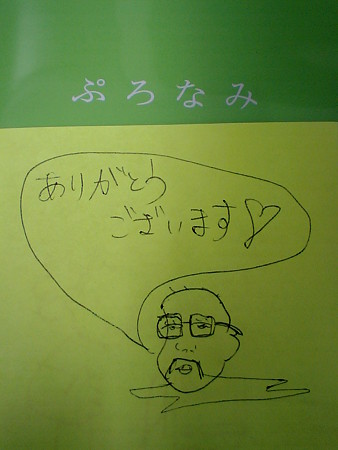 ぷろなみ
ありがとう
ございます♡